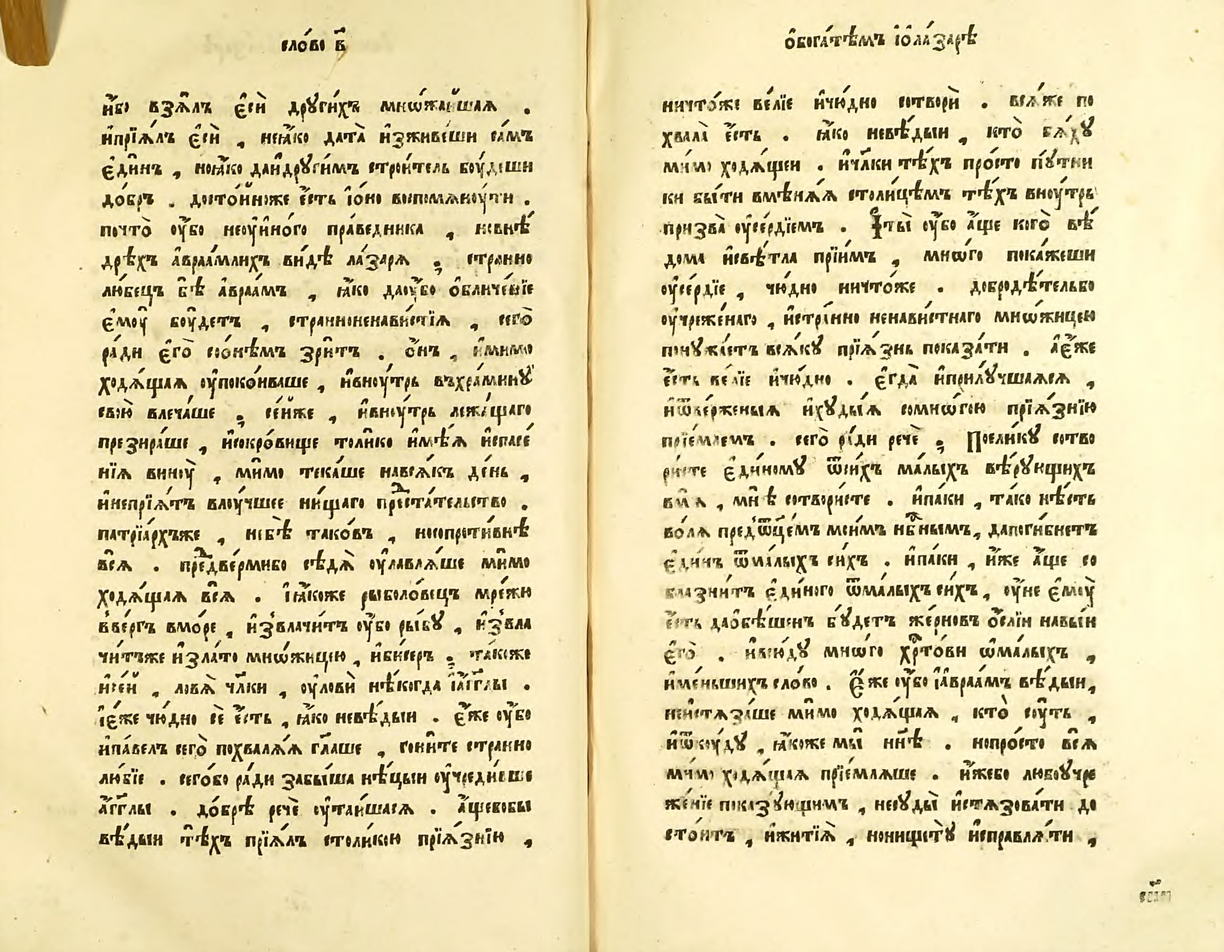 сло́во в҃
и҆́бо взѧ́лъ є҆сѝ дрꙋги́хъ мно́жайшаѧ .
и҆прїѧ́лъ є҆сѝ , неꙗ҆́ко дата̀ и҆зживе́ши са́мъ
є҆ди́нъ , ноꙗ҆́ко даи҆дрꙋги́мъ строи́тель бꙋ́деши
до́бръ . досто́йноже є҆́сть і҆о҆но воспомѧнꙋ́ти .
почто̀ ᲂу҆́бо неᲂу҆и҆но́го пра́ведника , новнѣ́
дрѣхъ а҆враа́млихъ ви́дѣ ла́зарѧ ; стра́нно
лю́бецъ бѣ̀ а҆враа́мъ , ꙗ҆́ко даᲂу҆́бо ѡ҆бличе́нїе
є҆мꙋ̀ бꙋ́детъ , странноненави́стїѧ , сего̀
ра́ди є҆го̀ сѻ́нѣмъ зри́тъ . ѻ҆́нъ , и҆ми́мо
ходѧ́щаѧ ᲂу҆поко́иваше , и҆внꙋ́трь въхра́минꙋ
свою̀ влеча́ше ; се́йже , и҆внꙋ́трь лежа́щаго
презира́ше , и҆сокро́вище толи́ко и҆мѣ́ѧ и҆спасе́
нїѧ винꙋ̀ , ми́мо тека́ше навсѧ́къ де́нь ,
и҆непрїѧ́тъ влꙋ́чшее ни́щаго пре́дстательство .
патрїа́рхъже , небѣ̀ тако́въ , носопроти́внѣ
всѧ̀ . пред̾две́рмибо сѣдѧ̀ ᲂу҆лавлѧ́ше ми́мо
ходѧ́щаѧ всѧ̀ . і҆ꙗ҆́коже рыболо́вецъ мре́жю
вве́ргъ вмо́ре , и҆звлачи́тъ ᲂу҆́бо ры́бꙋ , и҆звла
чи́тъже и҆зла́то мно́жицею , и҆би́серъ ; та́коже
и҆се́й , ловѧ̀ чл҃ки , ᲂу҆ловѝ нѣ́когда і҆а҆́гг҃лы .
і҆є҆́же чю́дно сѐ є҆́сть , ꙗ҆́ко невѣ́дыи . є҆́же ᲂу҆́бо
и҆па́велъ сего̀ похвалѧ́ѧ гл҃аше , гони́те стра́нно
лю́бїе . сего́бо ра́ди забы́ша нѣ́цыи ᲂу҆чреди́вше
а҆́гг҃лы . до́брѣ речѐ ᲂу҆таи́шасѧ . а҆́щебобы
вѣ́дыи тѣ́хъ прїѧ́лъ столи́кою прїѧ́знїю ,
ѡ҆бога́тѣмъ і҆ѡ҆ла́зарѣ
ничто́же ве́лїе и҆чю́дно сотворѝ . всѧ́же по
хвала̀ є҆́сть . ꙗ҆́ко невѣ́дыи , кто̀ бѧ́хꙋ
ми́мо ходѧ́щеи . и҆чл҃ки тѣ́хъ про́сто пꙋ́тни
ки бы́ти вмѣнѧ́ѧ столи́цѣмъ тѣ́хъ внꙋ́трь
призва̀ ᲂу҆се́рдїемъ . І҆ты̀ ᲂу҆́бо а҆́ще кого̀ вѣ́
дома и҆свѣ́тла прїи́мъ , мно́го пока́жеши
ᲂу҆се́рдїе , чю́дно ничто́же . добродѣ́тельбо
ᲂу҆чреже́наго , и҆стра́нно ненави́стнаго мно́жицею
понꙋжа́етъ всѧ́кꙋ прїѧ́знь показа́ти . а҆є҆́же
є҆́сть ве́лїе и҆чю́дно . є҆гда̀ и҆прилꙋ́чшаѧсѧ ,
и҆ѿве́рженыѧ и҆хꙋды́ѧ сомно́гою прїѧ́знїю
прїе́млемъ . сего̀ ра́ди речѐ ; Поели́кꙋ сотво
ри́сте є҆ди́номꙋ ѿси́хъ ма́лыхъ вѣ́рꙋющихъ
вмѧ̀ , мнѣ̀ сотвори́сте . и҆па́ки , та́ко нѣ́сть
во́лѧ пред̾ѻ҆ц҃е́мъ мои́мъ нб҃нымъ , дапоги́бнетъ
є҆ди́нъ ѿма́лыхъ си́хъ . и҆па́ки , и҆́же а҆́ще со
блазни́тъ є҆ди́ного ѿма́лыхъ си́хъ , ᲂу҆́не є҆мꙋ̀
є҆́сть даѡ҆бѣ́шенъ бꙋ́детъ же́рновъ ѻ҆́слїи навы́и
є҆го̀ . и҆всю́дꙋ мно́го хрⷭ҇то́ви ѡ҆ма́лыхъ ,
и҆ме́ньшихъ сло́во . Є҆́же ᲂу҆́бо і҆а҆враа́мъ вѣ́дыи ,
неи҆стѧза́ше ми́мо ходѧ́щаѧ , кто̀ сꙋ́ть ,
и҆ѿкꙋ́дꙋ , ꙗ҆́коже мы̀ нн҃ѣ . нопро́сто всѧ̀
ми́мо ходѧ́щаѧ прїе́млѧше . и҆́жебо любоᲂу҆чре
же́нїе показꙋ́ющимъ , неᲂу҆ды̀ и҆стѧзова́ти до
сто́итъ , и҆житїѧ̀ , нонищетꙋ̀ и҆справлѧ́ти ,